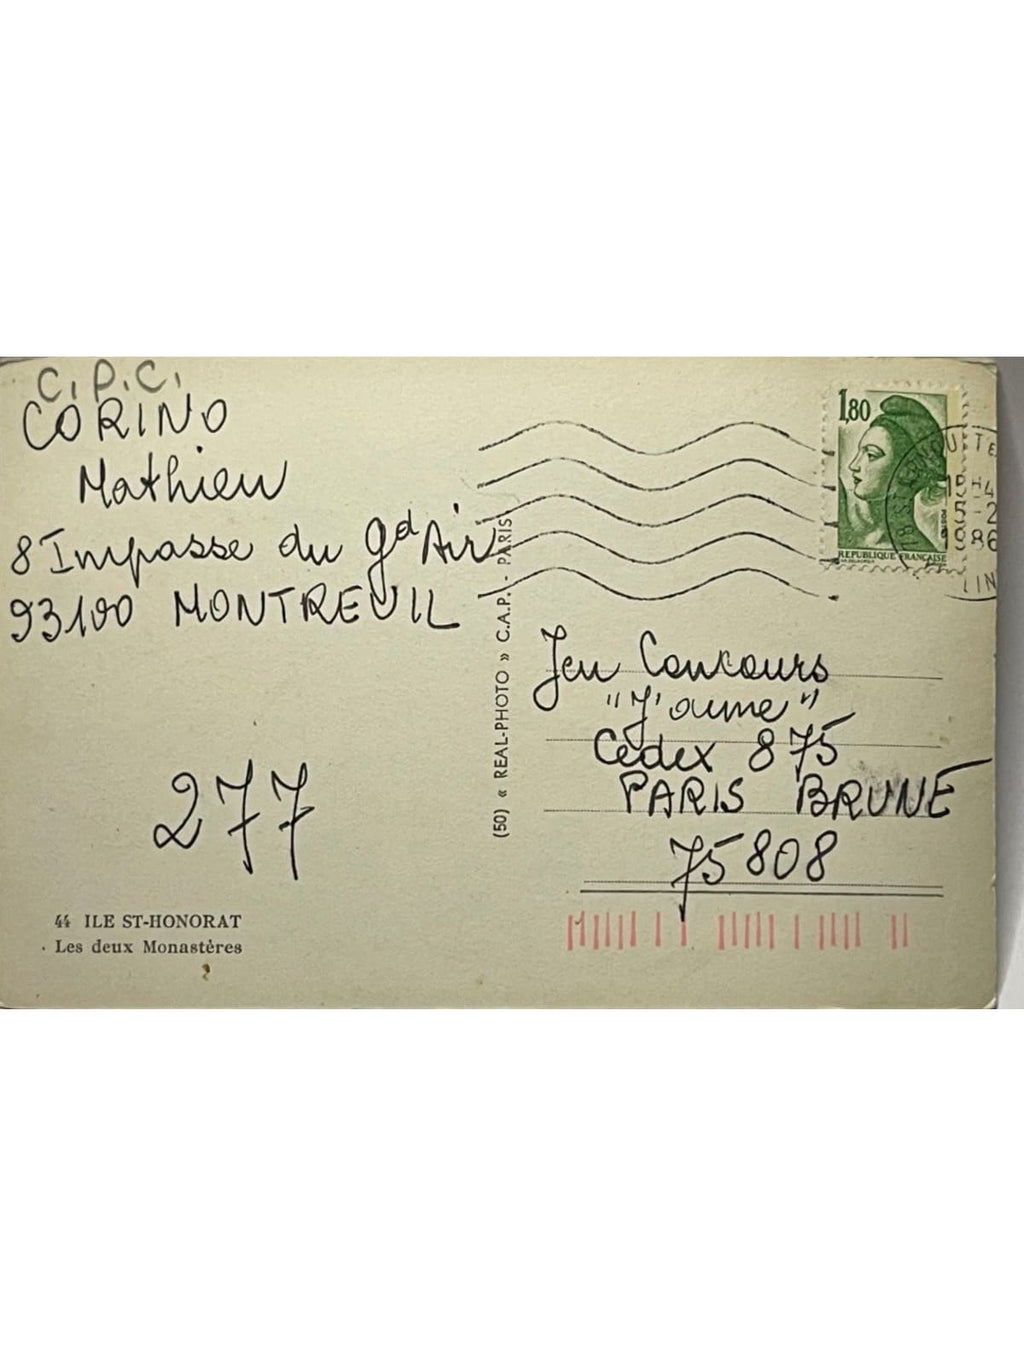 C.P.C.
CORINO
Mathieu
8 Impasse du Gd Air
93100 MONTREUIL
277
44 ILE ST-HONORAT
Les deux Monastères
(50) « REAL-PHOTO » C.A.P. - PARIS
1,80
REPUBLIQUE FRANÇAISE
15H4
5-2
1986
Jeu Concours
"J'aime"
Cedex 875
PARIS BRUNE
75808